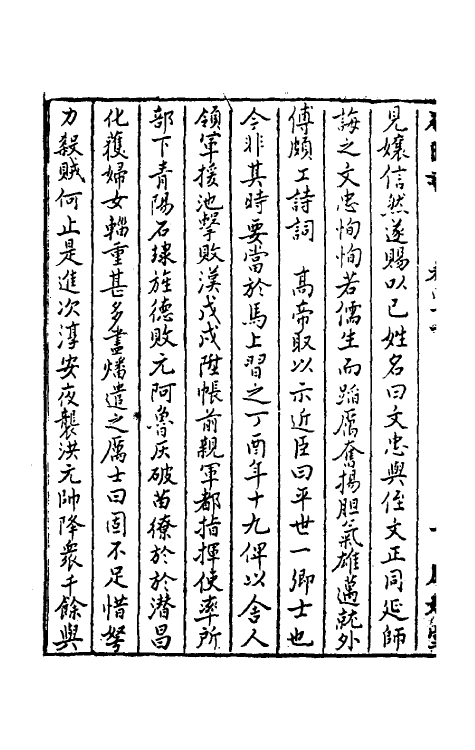 見孃信然遂賜以己姓名曰文忠與侄文正同延師
誨之文忠恂恂若儒生而蹈厲奮揚胆氣雄邁就外
傅頗工詩詞　高帝取以示近臣曰平世一卿士也
今非其時要當於馬上習之丁酉年十九俾以舍人
領軍援池擊敗漢戊戌陞帳前親軍都指揮使率所
部下青陽石埭旌德敗元阿魯灰破苗獠於於潛昌
化獲婦女輜重甚多盡燔遣之厲士曰固不足惜努
力殺賊何止是進次淳安夜襲洪元帥降衆千餘與